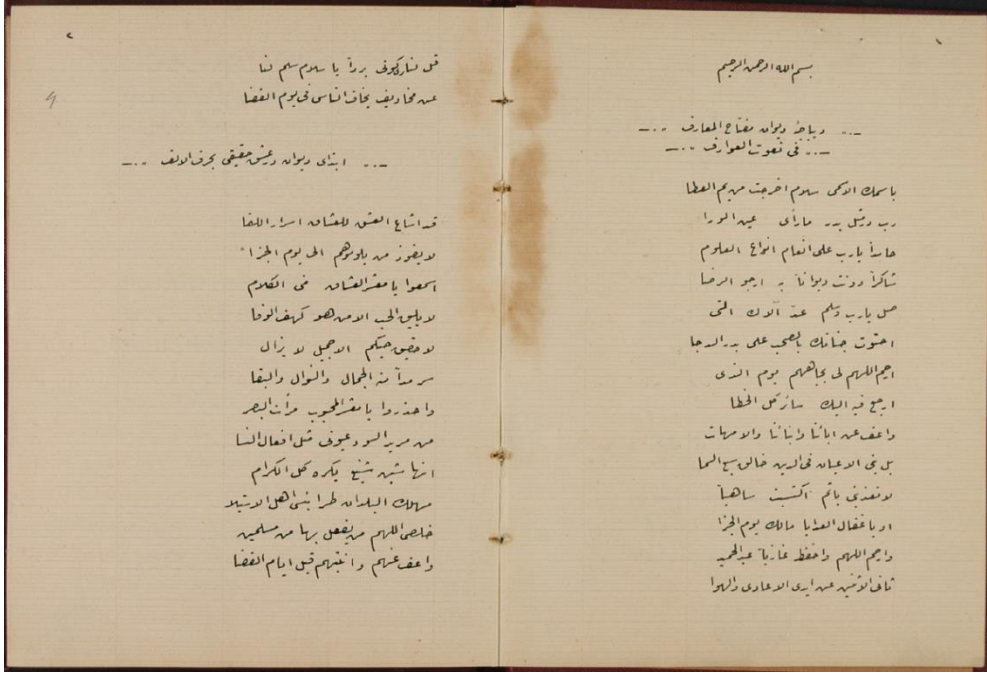 ١
بسم الله الرحمن الرحيم
ديباجۀ ديوان مفتاح المعارف
فى نعوت العوارف
باسمك الاسمى سلام اخرجت من يم العطا
رب ومثل بدر مارأى عين الورا
حامداً يارب على انعام انواع العلوم
شاكراً دونت ديواناً به ارجو الرضا
صل يارب وسلم عد آلاك التى
احتوت جناتك بالصحب على بدر الدجا
ارحم اللهم لى بجاههم يوم الذى
ارجع فيه اليك سائر كل الخطا
واعف عن ابائنا وابنائنا والامهات
بل بنى الاعيان فى الدين خالق سبع السما
لا تعذبنى باثم اكتسبت ساهياً
او باغفال العدايا مالك يوم الجزا
وارحم اللهم واحفظ غازياً عبد الحميد
ثانى الاثنين عن ايدى الاعادى والهوا
٢
قل لنار كونى برداً يا سلام سلم لنا
عن مخاويف يخاف الناس فى يوم القضا
ابتداى ديوان در عشق حقيقى بحرف الالف
قد اشاع العشق للعشاق اسرار اللقا
لا يفوز من يلوموهم الى يوم الجزا
اسمعوا يا معشر العشاق منى الكلام
لا يليق الحب الا من هو كهف الوفا
لا حقيق حبكم الا جميل لا يزال
سرمداً منه الجمال والنوال والبقا
واحذروا يا معشر المحبوب مرأت البصر
من مرير السوء عيونى مثل افعال النسا
انها شين شنيع يكره كل الكرام
مهلك البلدان طرا بشى اهل الابتلا
خلصى اللهم من يفعل بها من مسلمين
واعف عنهم وانتبهم قبل ايام القضا